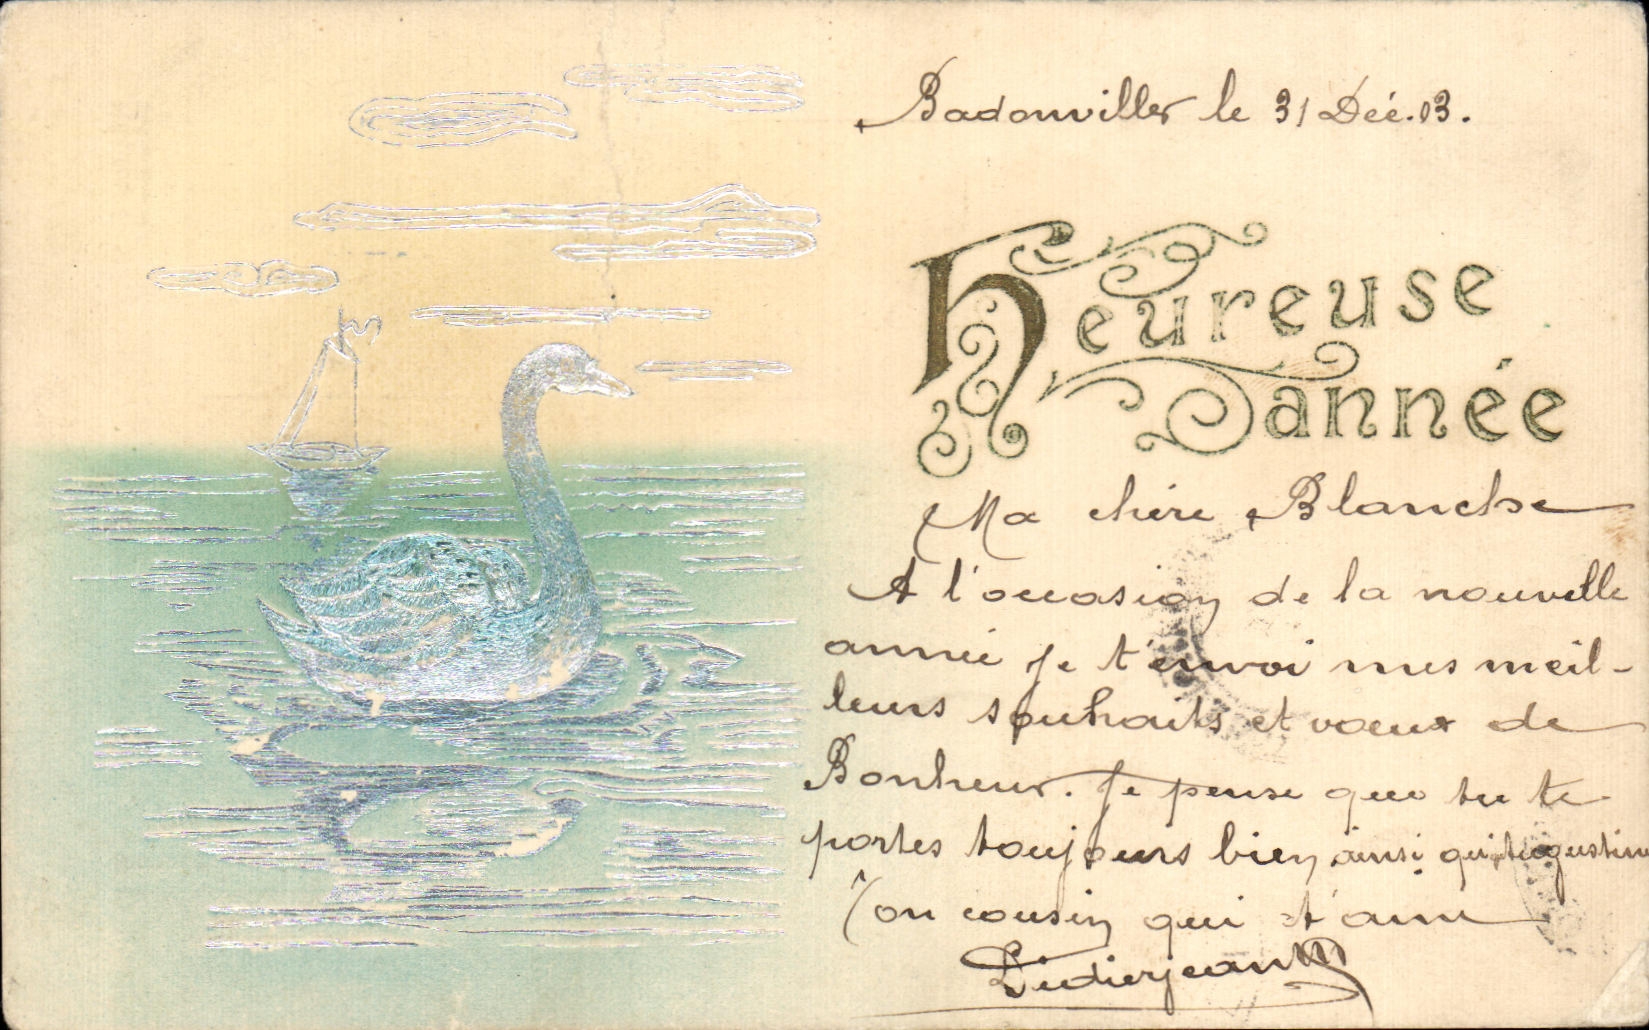 Badonviller le 31 Déc. 03.
Heureuse
année
Ma chère Blanche
A l'occasion de la nouvelle
année je t'envoi mes meil-
leurs souhaits et voeux de
Bonheur. Je pense que tu te
portes toujours bien ainsi qu'Augustine
Ton cousin qui t'aime
Didierjean